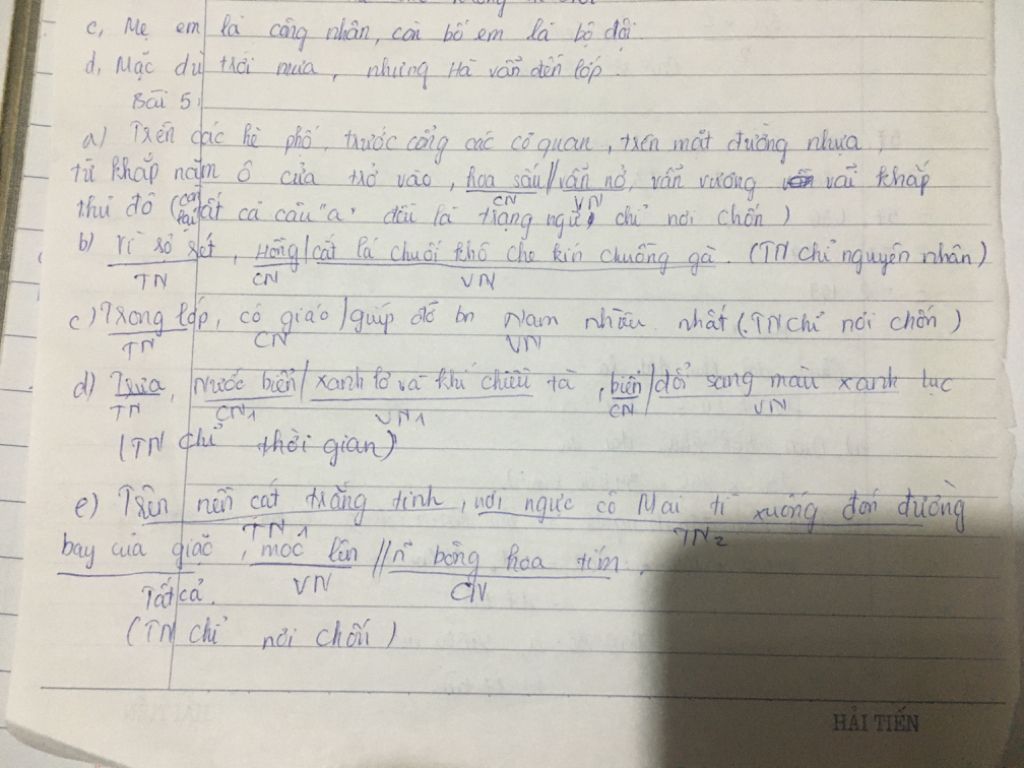 c, Mẹ em là công nhân, còn bố em là bộ đội.
d, Mặc dù trời mưa, nhưng Hà vẫn đến lớp.
Bài 5:
a) Trên các hè phố, trước cổng các cơ quan, trên mặt đường nhựa
từ khắp năm ô cửa trở vào, hoa sấu//vẫn nở, vẫn vương vãi khắp
CN VN
thủ đô (còn lại tất cả câu "a" đều là trạng ngữ, chỉ nơi chốn)
b) Vì sợ rét, Hồng/cắt lá chuối khô che kín chuồng gà. (TN chỉ nguyên nhân)
TN CN VN
c) Trong lớp, cô giáo/giúp đỡ bn Nam nhiều nhất (TN chỉ nơi chốn)
TN CN VN
d) Trưa, nước biển/xanh lơ và khi chiều tà, biển/đổi sang màu xanh lục
TN CN1 VN1 CN VN
(TN chỉ thời gian)
e) Trên nền cát trắng tinh, nơi ngực cô Mai tì xuống đón đường
TN1 TN2
bay của giặc, mọc lên//n~ bông hoa tím.
VN CN
Tất cả.
(TN chỉ nơi chốn)
HẢI TIẾN